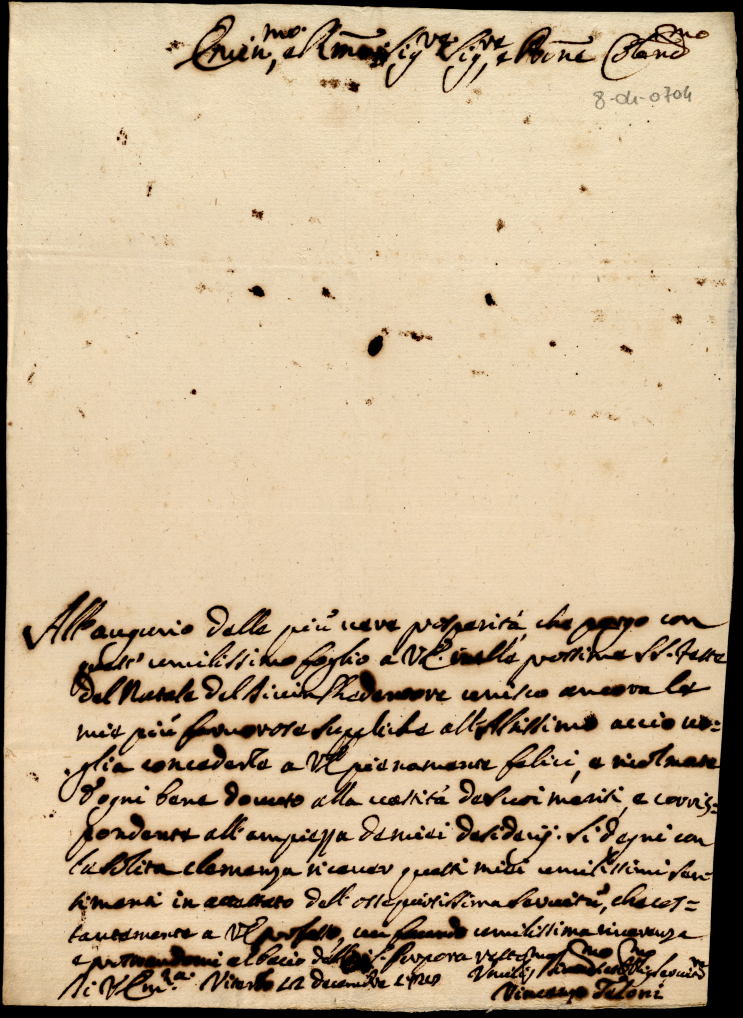 Emin.mo, e Rmo Sig.re Sig.re, e Prone Colend.mo
8-04-0704
All'augurio delle più vere prosperità, che porgo con
quest'umilissimo foglio a VE. nelle prossime SS. Feste
del Natale del Divin Redentore unisco ancora le
mie più fervorose suppliche all'Altissimo acciò vo=
glia concederle a VE pienamente felici, e ricolmate
d'ogni bene dovuto alla vastità de suoi meriti, e corris=
pondente all'ampiezza de miei desiderij. Si degni con
la solita clemenza ricever questi miei umilissimi sen=
timenti in attestato dell'ossequiosissima servitù, che cos=
tantemente a VE professo, con umilissima riverenza
e al bacio della S. Porpora resto
Di V. Em.za Viterbo 22 decembre Umilis.mo
Vincenzo Feloni